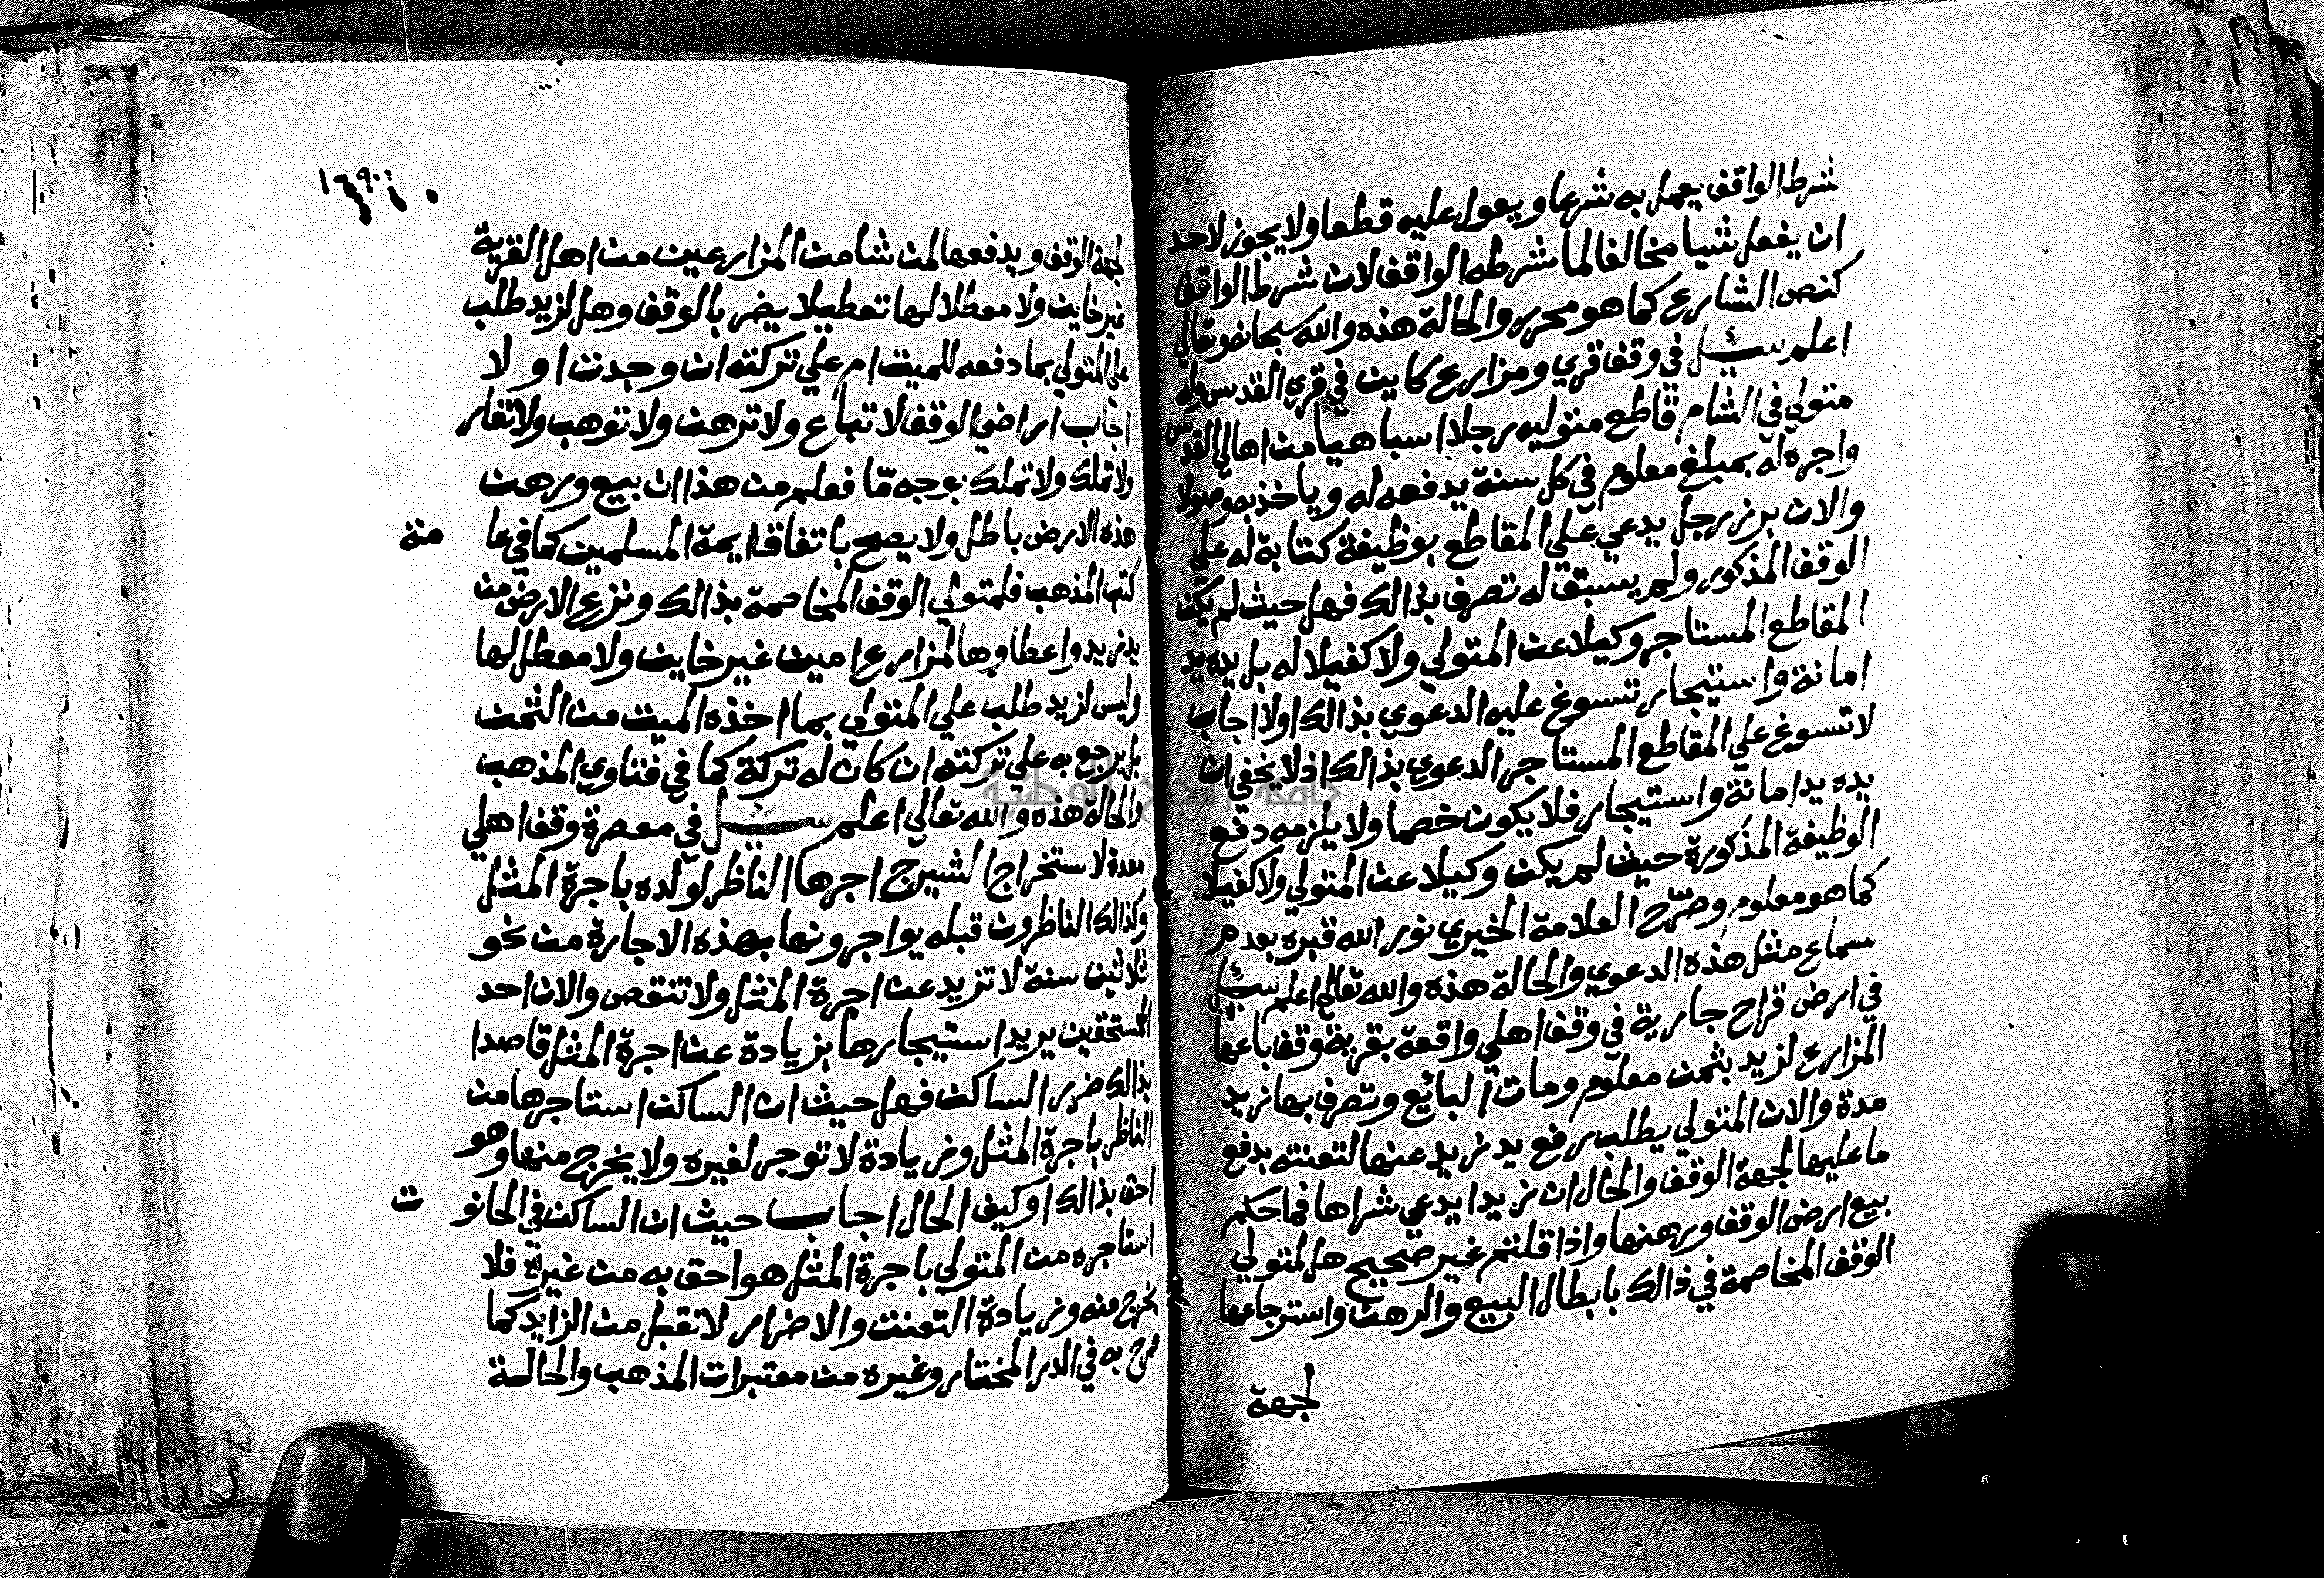 شرط الواقف يعمل به شرعا ويعول عليه قطعا ولا يجوز لاحد
ان يفعل شيا مخالفا لما شرطه الواقف لان شرط الواقف
كنص الشارع كما هو محرر والحالة هذه والله سبحانه وتعالي
اعلم سئل في وقف قري ومزارع كاين في قري القدس وله
متولي في الشام قاطع متوليه رجلا اسباهيا من اهالي القدس
واجره له بمبلغ معلوم في كل سنة يدفعه له وياخذ به وصولا
والان برز رجل يدعي علي المقاطع بوظيفة كتابة له علي
الوقف المذكور ولم يسبق له تصرف بذالك فهل حيث لم يكن
المقاطع المستاجر وكيلا عن المتولي ولا كفيلا له بل يده يد
امانة واستيجار تسوغ عليه الدعوي بذالك اولا اجاب
لا تسوغ علي المقاطع المستاجر الدعوي بذالك اذ لا يخفي ان
يده يد امانة واستيجار فلا يكون خصما ولا يلزمه دفع
الوظيفة المذكورة حيث لم يكن وكيلا عن المتولي ولا كفيلا
كما هو معلوم وصرح العلامة الخيري نور الله قبره بعدم
سماع مثل هذه الدعوي والحالة هذه والله تعالي اعلم سئل
في ارض قراح جارية في وقف اهلي واقعة بقرية وقف باعها
المزارع لزيد بثمن معلوم ومات البائع وتصرف بها زيد
مدة والان المتولي يطلب رفع يد زيد عنها لتعنته بدفع
ما عليها لجهة الوقف والحال ان زيدا يدعي شراها فما حكم
بيع ارض الوقف ورهنها واذا قلتم غير صحيح هل لمتولي
الوقف المخاصمة في ذالك بابطال البيع والرهن واسترجاعها
لجهة
لجهة الوقف ويدفعها لمن شا من المزارعين من اهل القرية
غير خاين ولا معطلا لها تعطيلا يضر بالوقف وهل لزيد طلب
علي المتولي بما دفعه للميت ام علي تركته ان وجدت او لا
اجاب اراضي الوقف لا تباع ولا ترهن ولا توهب ولا تعار
ولا تملك ولا تملك بوجه ما فعلم من هذا ان بيع ورهن
هذه الارض باطل ولا يصح باتفاق ايمة المسلمين كما في عا
مة
كتب المذهب فلمتولي الوقف المخاصمة بذالك ونزع الارض من
يد زيد واعطاوها لمزارع امين غير خاين ولا معطل لها
وليس لزيد طلب علي المتولي بما اخذه الميت من الثمن
بل يرجع به علي تركته ان كان له تركة كما في فتاوي المذهب
والحالة هذه والله تعالي اعلم سئل في معصرة وقف اهلي
معدة لاستخراج الشيرج اجرها الناظر لولده باجرة المثل
وكذالك الناظرون قبله يواجرونها بهذه الاجارة من نحو
ثلاثين سنة لا تزيد عن اجرة المثل ولا تنقص والان احد
المستحقين يريد استيجارها بزيادة عن اجرة المثل قاصدا
بذالك ضرر الساكن فهل حيث ان الساكن استاجرها من
الناظر باجرة المثل وزيادة لا توجر لغيره ولا يخرج منها وهو
احق بذالك او كيف الحال اجاب حيث ان الساكن في الحانو
ت
استاجره من المتولي باجرة المثل هو احق به من غيره فلا
يخرج منه وزيادة التعنت والاضرار لا تقبل من الزايد كما
صرح به في الدر المختار وغيره من معتبرات المذهب والحالة